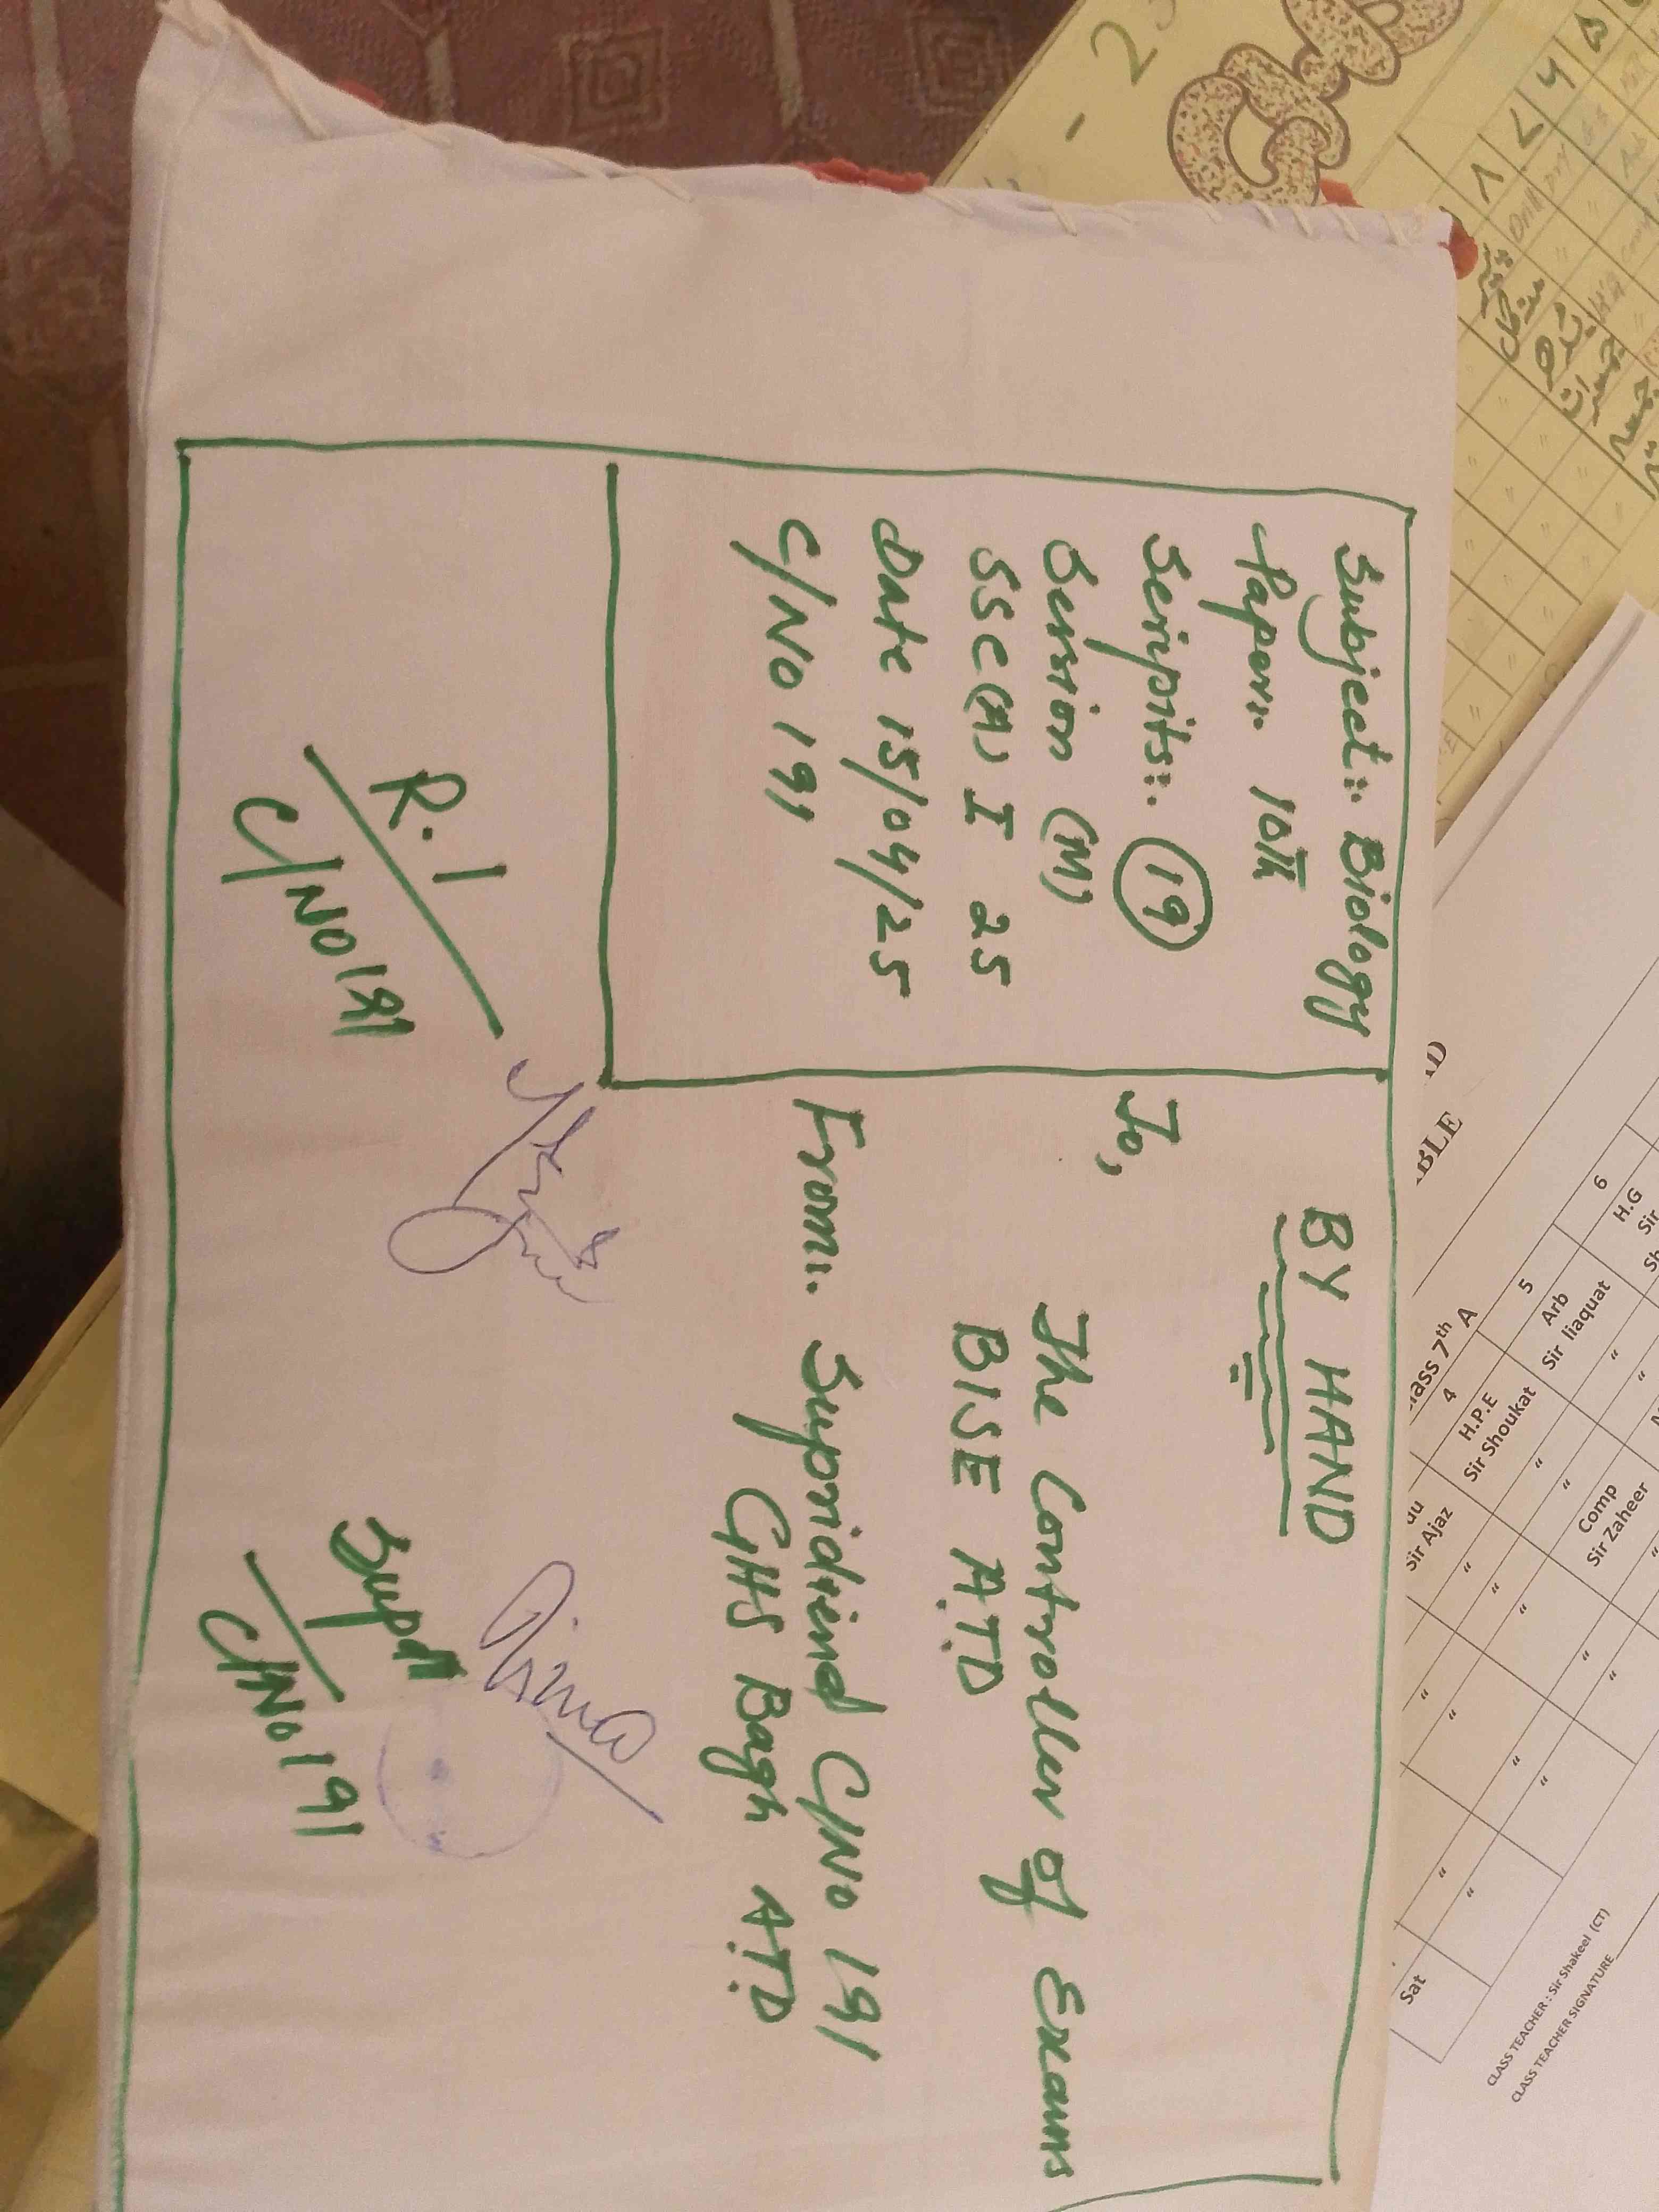 Subject:. Biology
Paper:. 10th
Scripits:. 19
Session (M)
SSC(A) I 25
Date 15/04/25
C/No 191
BY HAND
To,
The Controller of Exams
BISE A.T.D
From:. Supridtend C/No 191
GHS Bagh A.T.D
R.I
C/No 191
Supdt
C/No 191
- 2
پیر
منگل
بدھ
جمعرات
جمعہ
ABLE
Class 7th A
4
5
6
H.P.E
Arb
H.G
Sir Ajaz
Sir Shoukat
Sir liaquat
Sir
Comp
Sir Zaheer
Sat
CLASS TEACHER : Sir Shakeel (CT)
CLASS TEACHER SIGNATURE